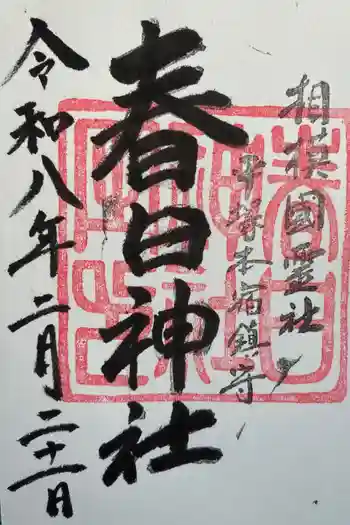 相模國霊社
平塚本宿鎮守
春日神社
令和八年二月二十一日